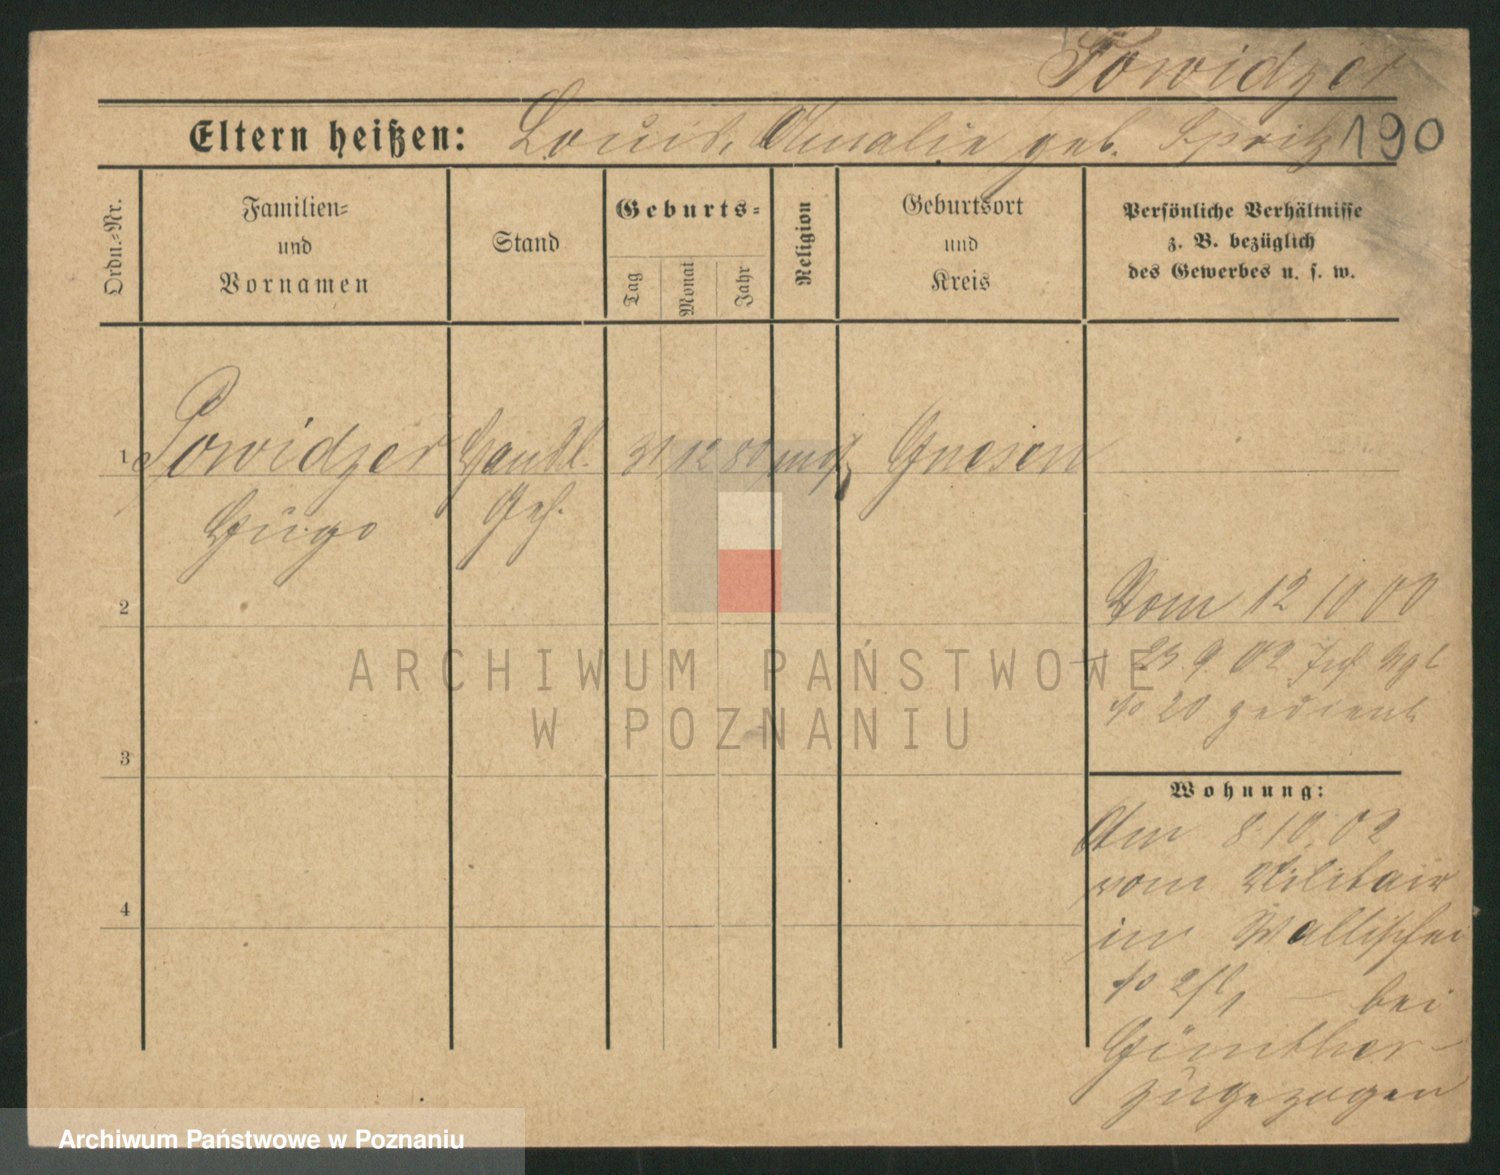 Powidzer
Eltern heißen: Louis, Amalie geb. Spritz
190
Ordn.-Nr.
Familien-
und
Vornamen
Stand
Geburts-
Tag
Monat
Jahr
Religion
Geburtsort
und
Kreis
Persönliche Verhältnisse
z. B. bezüglich
des Gewerbes u. s. w.
1 Powidzer Handl. 31 12 80 mos. Gnesen
Hugo Geh.
2
Vom 12 10 00
23 9 02 Inf. Rgt
No 20 gedient
3
Wohnung:
Am 8.10.02
vom Militair
in Wallischei
4
No 2/I, – bei
Günther –
zugezogen
ARCHIWUM PAŃSTWOWE
W POZNANIU
Archiwum Państwowe w Poznaniu